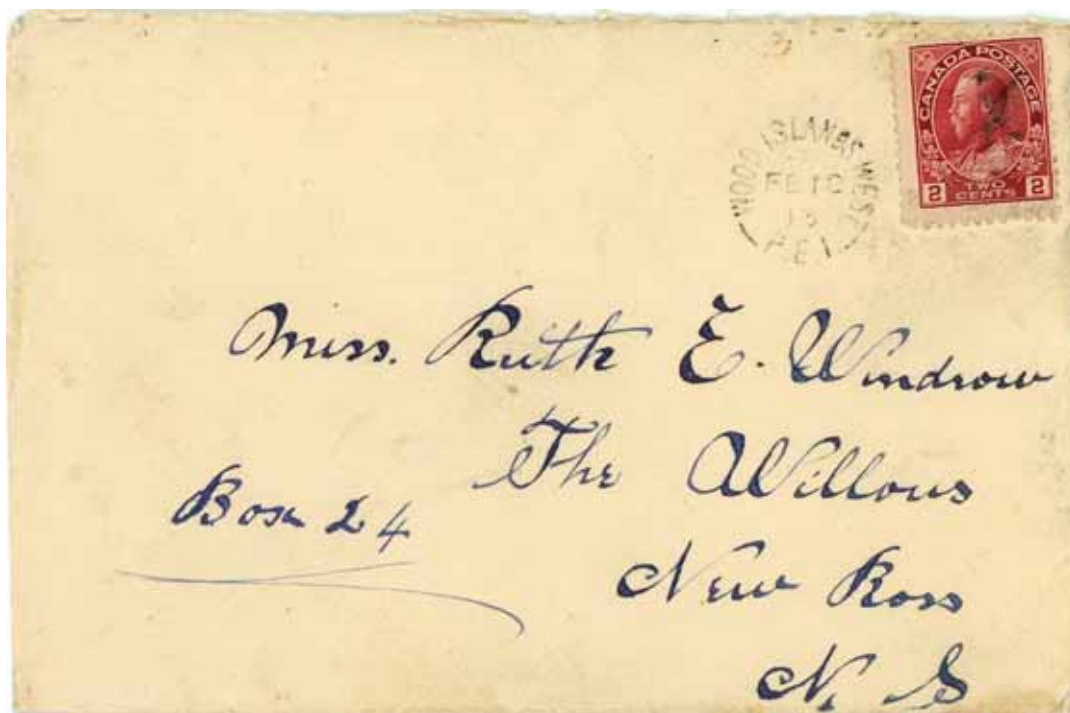 CANADA POSTAGE
2 TWO CENTS 2
WOOD ISLANDS WEST
FE 10
P.E.I
Miss. Ruth E. Windrow
The Willows
Box 24
New Ross
N. S